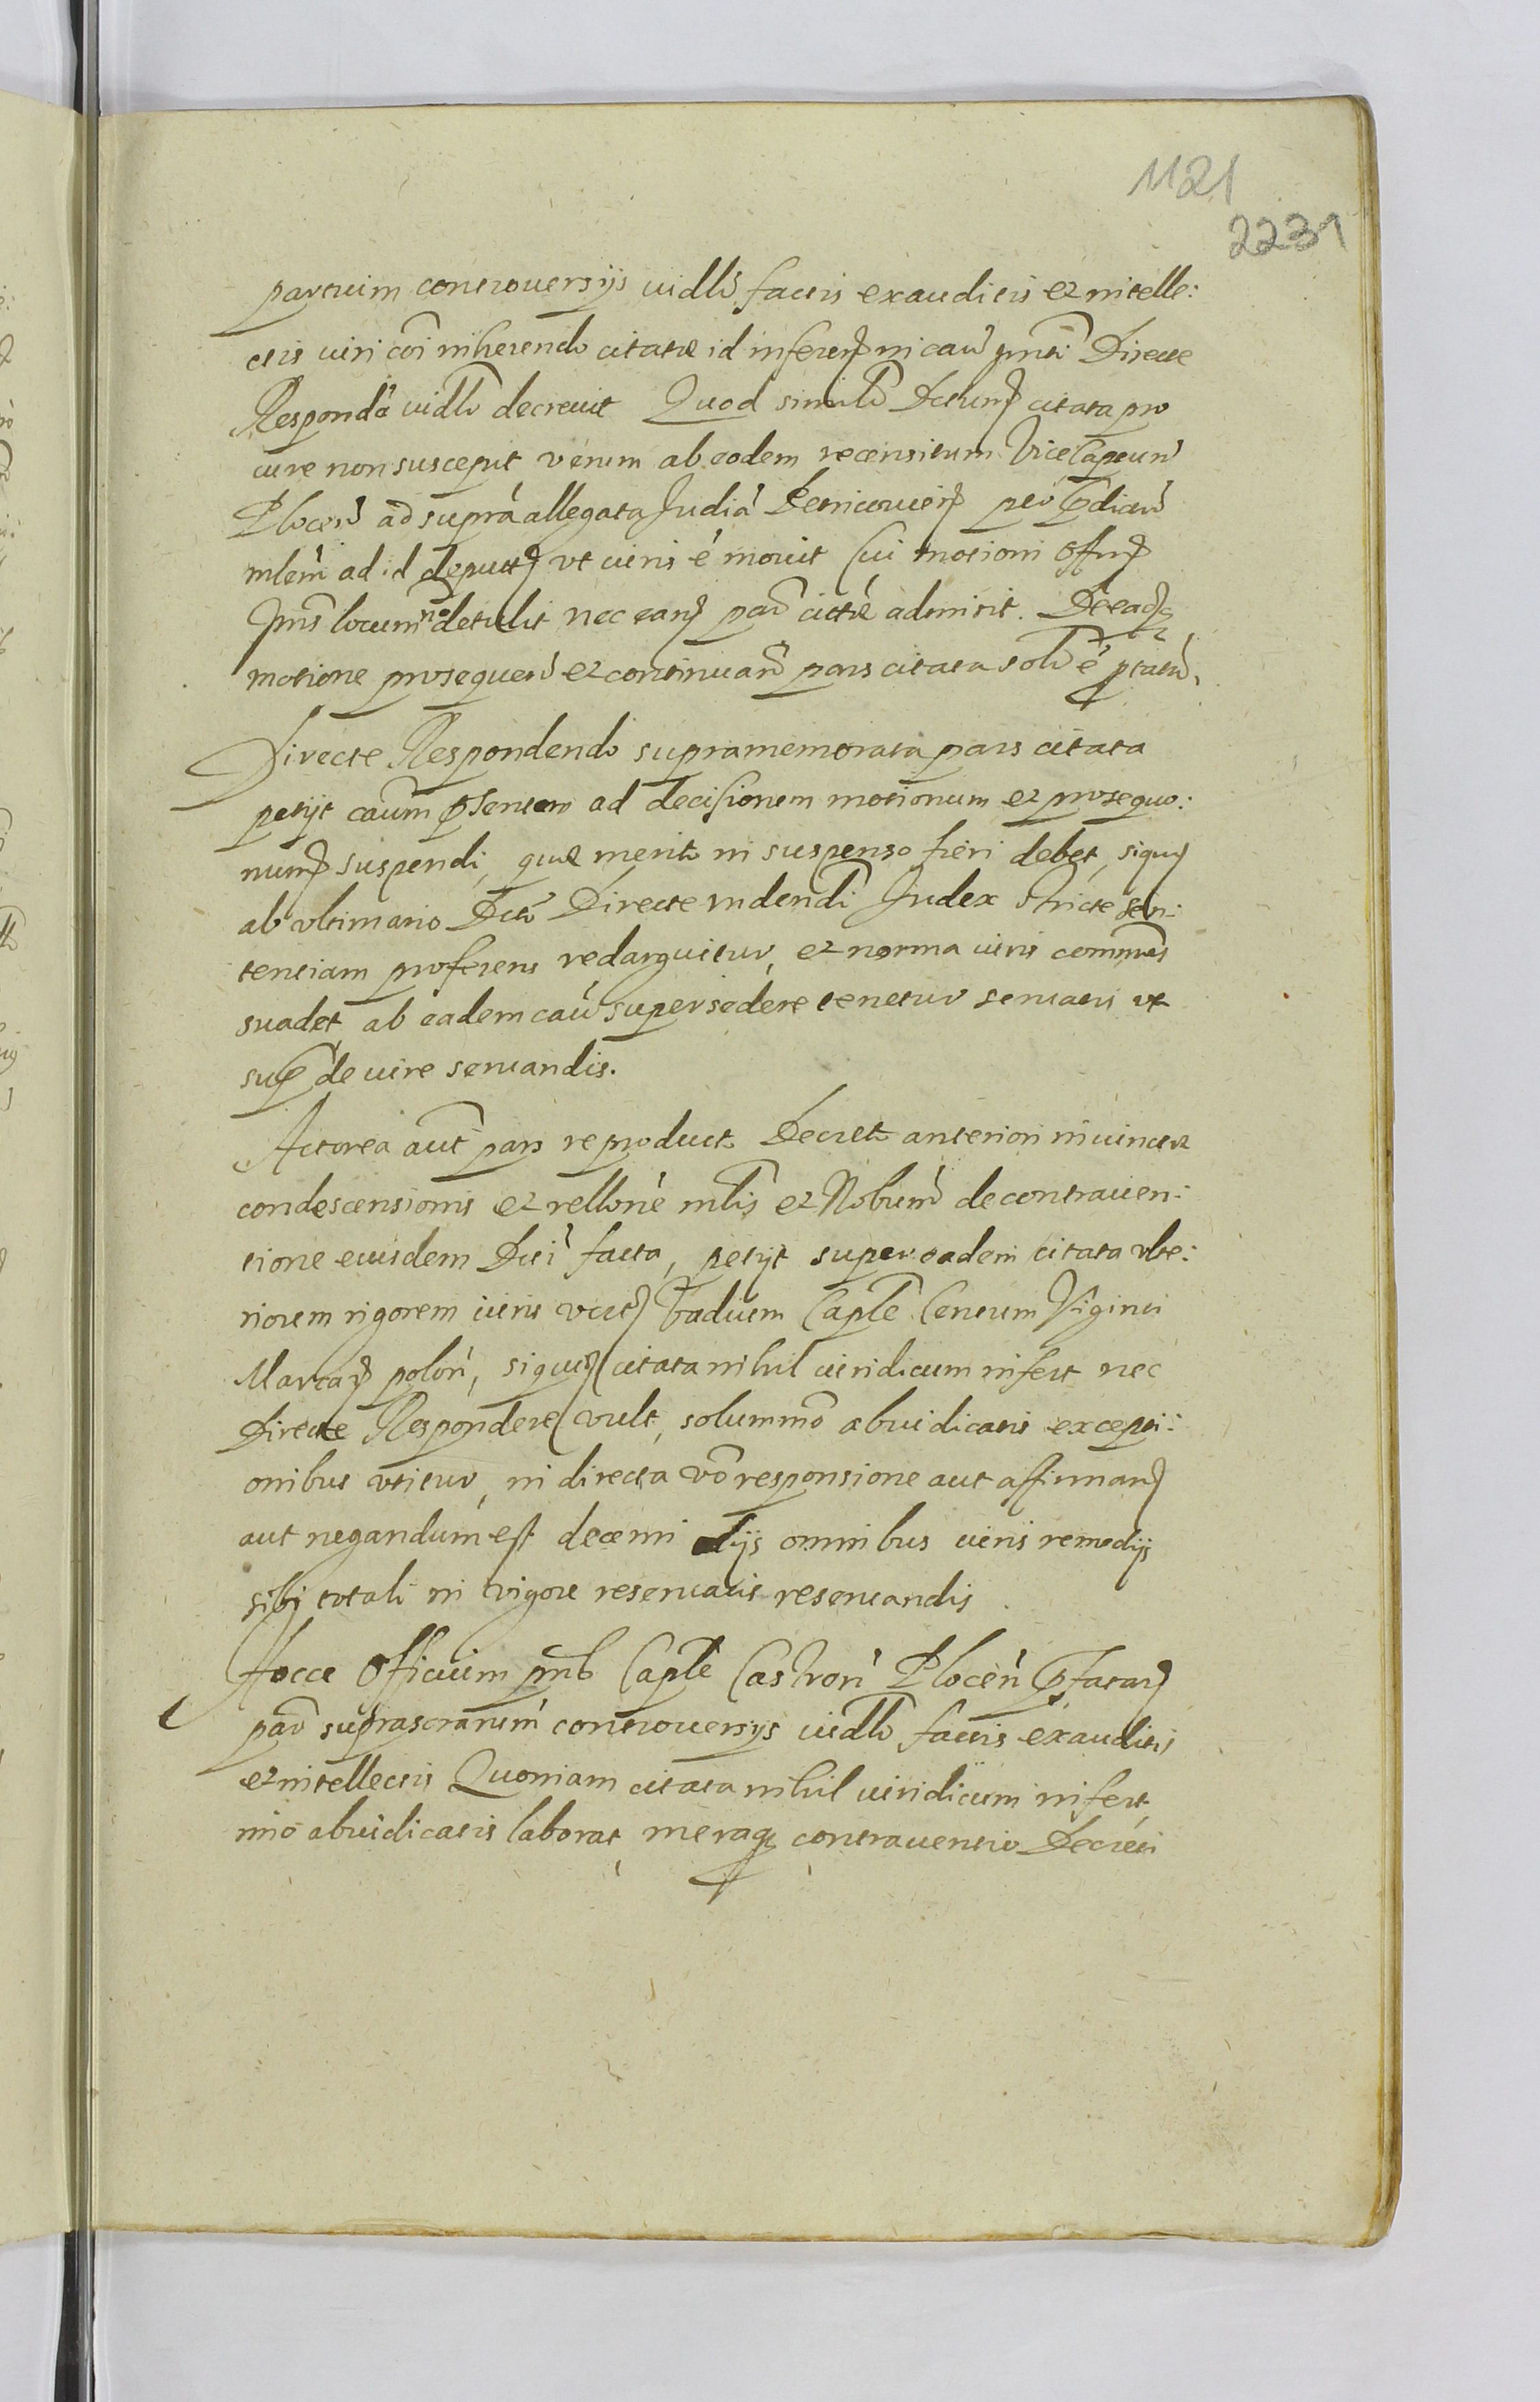 1121
2231
partium controuersijs iudllr factis exauditis et intelle:
ctis iuri coi inherendo citatæ id inferen in cau pnti Directe
Respondā iudllr decreuit Quod simile Dctum citata pro
iure non suscepit verum ab eodem recensitum ViceCapeum
Plocen ad supra allegata Judia per prædicaū
mlem ad id deputt vt iuris e mouit Cui motioni Offm
Pns locum no detulit nec eam par cittæ admisit. De eaqz
motione prosequen et continuan pars citata sole e ptata,
Directe Respondendo supramemorata pars citata
petijt caum psentem ad decisionem motionum et prosequo:
num suspendi, quæ merito in suspenso fieri debet, siqu
ab vltimario Dcto Directe rndendi Judex stricte sen:
tentiam proferens redarguitur, et norma iuris commis
suadet, ab eadem cau supersedere tenetur seruatis vt
sup de iure seruandis.
Actorea aut pars reproducto Decreto anteriori inuincta
condescensionis et rellone mlis et Nobum de contrauen:
tione eiusdem Dcti facta, petijt super eadem citata vlte:
riorem rigorem iuris vctz vadium Caple Centum Viginti
Marcar polon, siqu citata nihil iuridicum infert nec
Directe Respondere vult, solummo abiudicatis excepti:
onibus vtitur, in directa vo responsione aut affirman
aut negandum est decerni alijs omnibus iuris remedijs
sibi totali in vigore reseruatis reseruandis
Hocce Officium pns Caple Castron Plocen pfatar
par suprascrarum controuersijs iudllr factis exauditis
et intellectis Quoniam citata nihil iuridicum infert,
imo abiudicatis laborat meraqz contrauentio Decreti